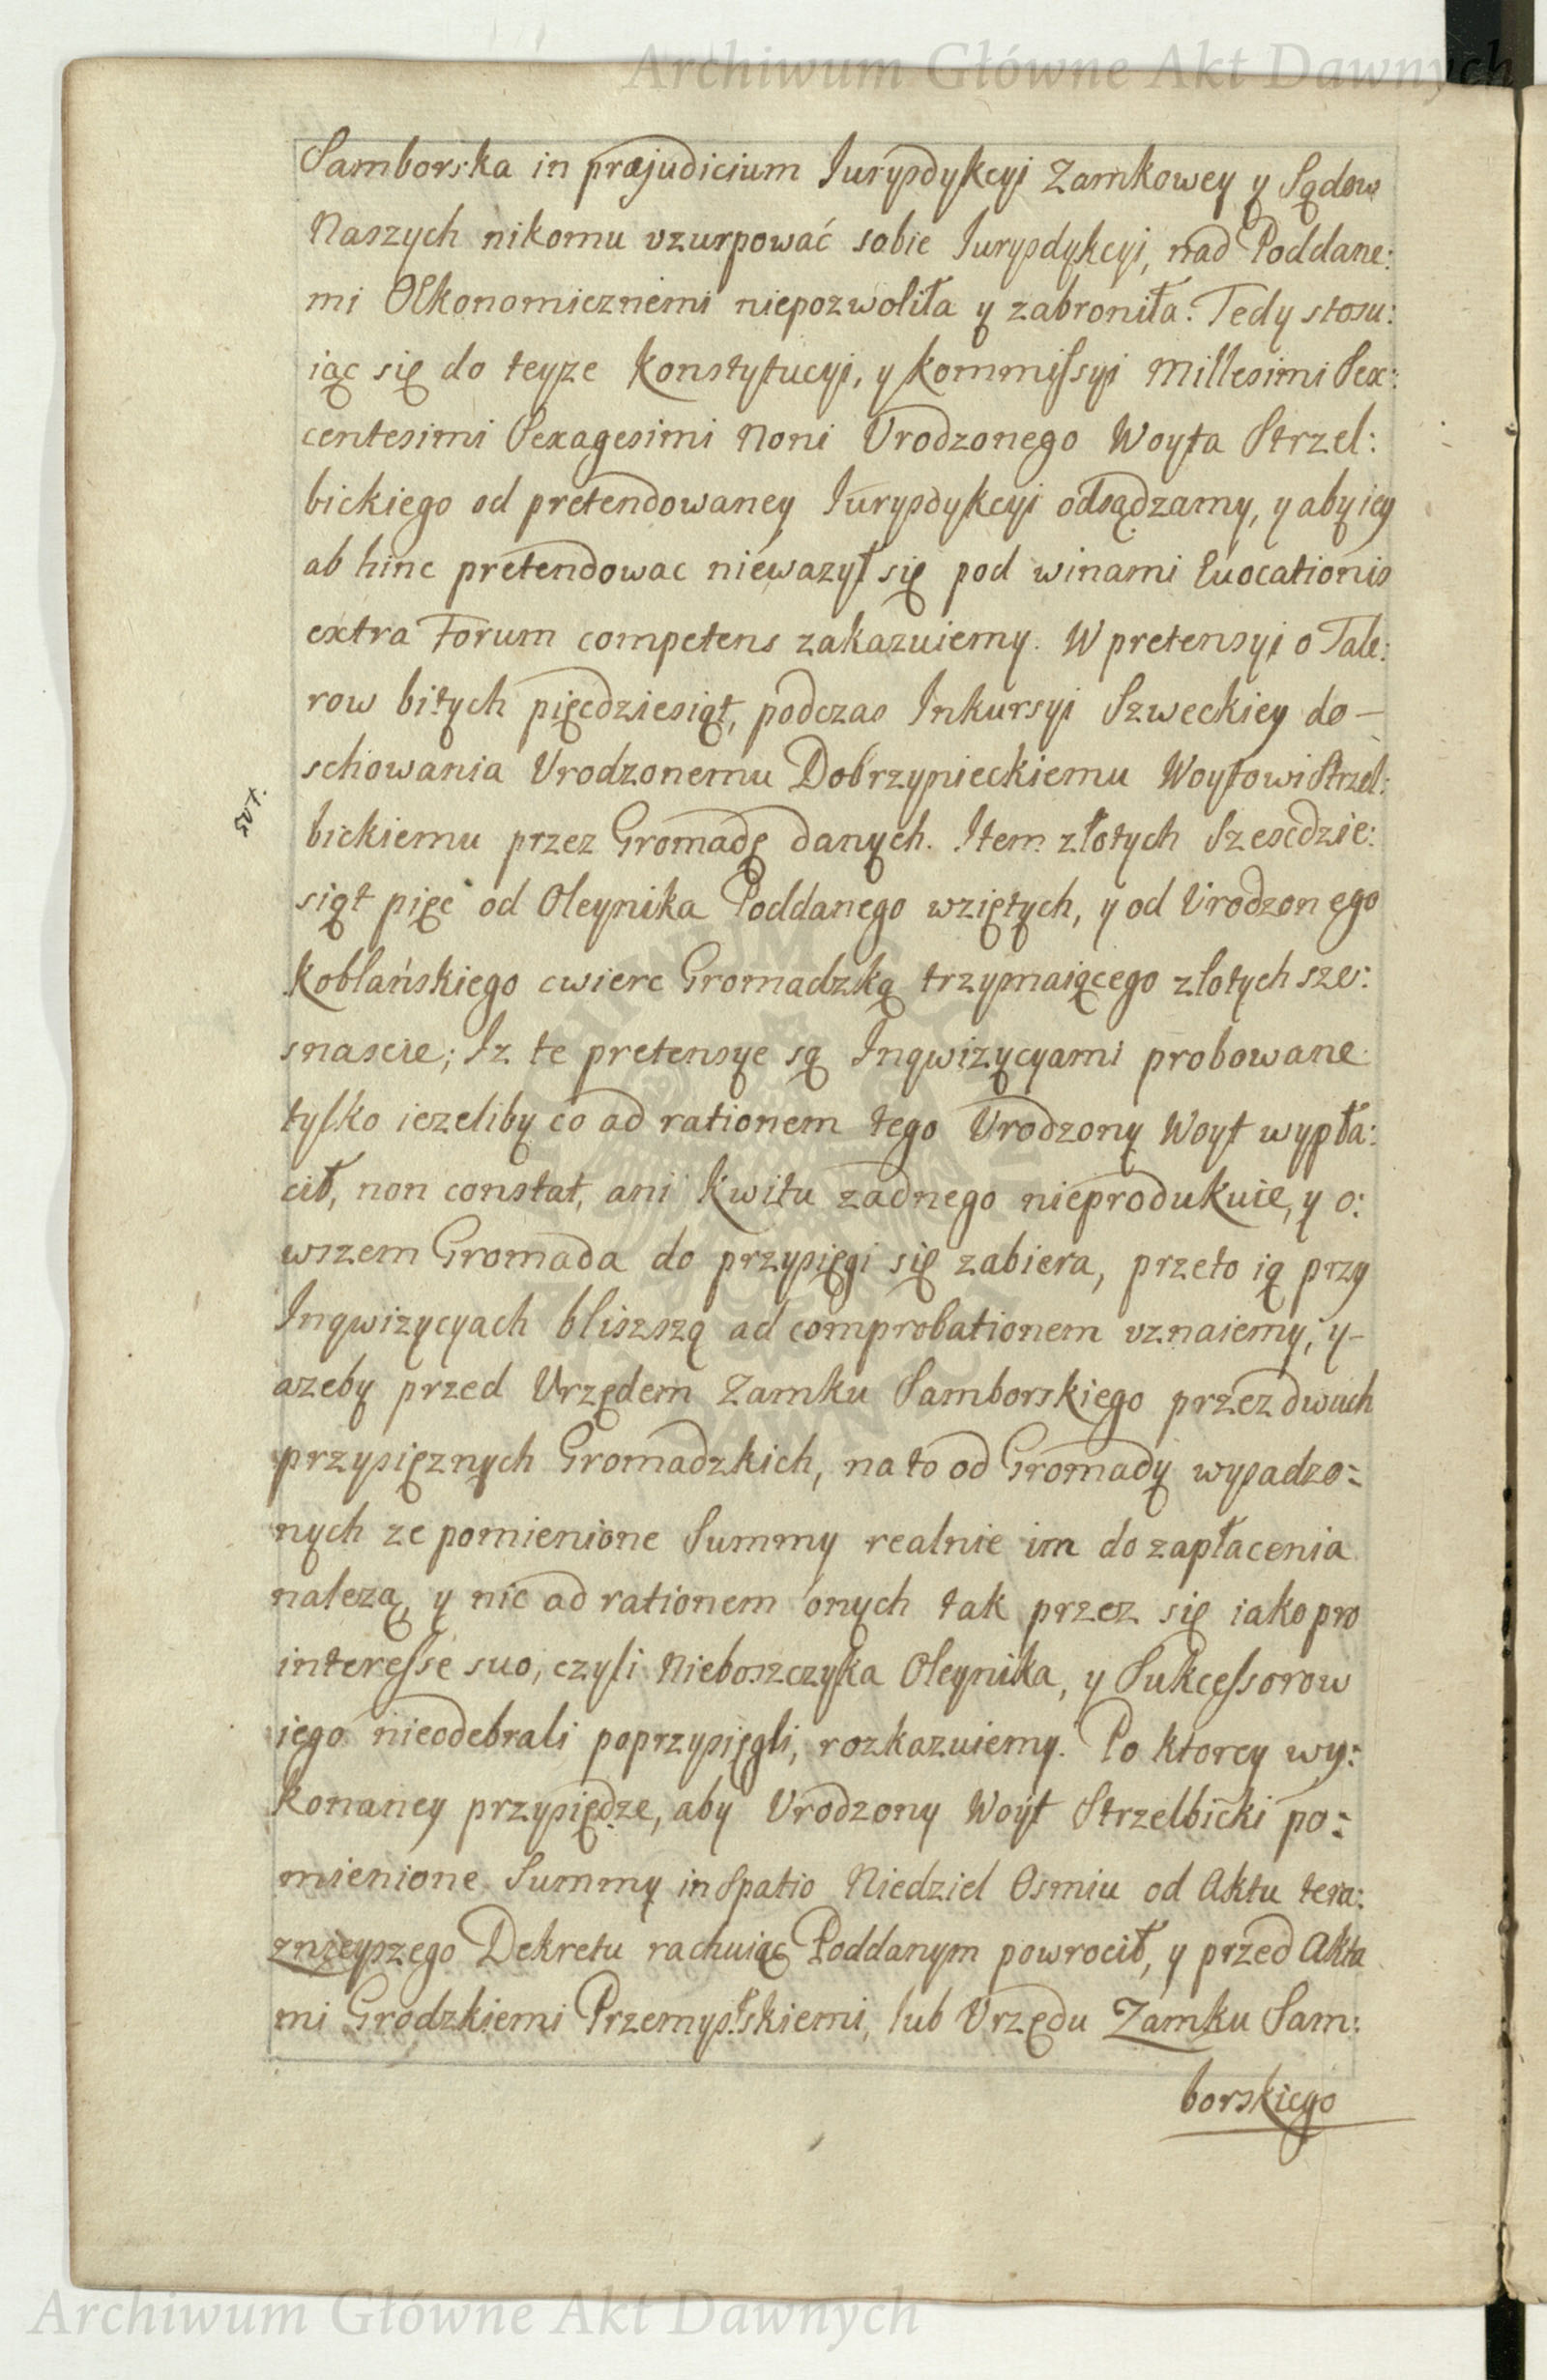 Archiwum Główne Akt Dawnych
Samborska in præjudicium Iurysdykcyi Zamkowey y Sądow
Naszych nikomu vzurpować sobie Iurysdykcyi, nad Poddane:
mi OEkonomicznemi niepozwoliła y zabroniła. Tedy stosu:
iąc się do teyze Konstytucyi, y Kommissyi Millesimi Sex:
centesimi Sexagesimi Noni Vrodzonego Woyta Strzel:
bickiego od pretendowaney Iurysdykcyi odsądzamy, y aby iey
ab hinc pretendowac niewazył się pod winami Euocationis
extra Forum competens zakazuiemy. W pretensyi o Tale:
row bitych pięcdziesiąt, podczas Inkursyi Szweckiey do –
schowania Vrodzonemu Dobrzynieckiemu Woytowi Strzel:
bickiemu przez Gromadę danych. Item złotych Szescdzie:
siąt pięc od Oleynika Poddanego wziętych, y od Vrodzonego
Koblańskiego cwierc Gromadzką trzymaiącego złotych szes:
snascie; Iz te pretensye są Inqwizycyami probowane
tylko iezeliby co ad rationem tego Vrodzony Woyt wypła:
cił, non constat, ani Kwitu zadnego nieprodukuie, y o:
wszem Gromada do przysięgi się zabiera, przeto ią przy
Inqwizycyach bliszszą ad comprobationem vznaiemy, y –
azeby przed Vrzędem Zamku Samborskiego przez dwuch
przysięznych Gromadzkich, na to od Gromady wysadzo=
nych ze pomienione Summy realnie im do zapłacenia
nalezą, y nic ad rationem onych tak przez się iako pro
interesse suo, czyli Nieboszczyka Oleynika, y Sukcessorow
iego nieodebrali poprzysięgli, rozkazuiemy. Po ktorey wy:
konaney przysiędze, aby Vrodzony Woyt Strzelbicki po=
mienione Summy in Spatio Niedziel Osmiu od Aktu tera:
znieyszego Dekretu rachuiąc Poddanym powrocił, y przed Akta
mi Grodzkiemi Przemyslskiemi, lub Vrzędu Zamku Sam:
borskiego
Archiwum Główne Akt Dawnych